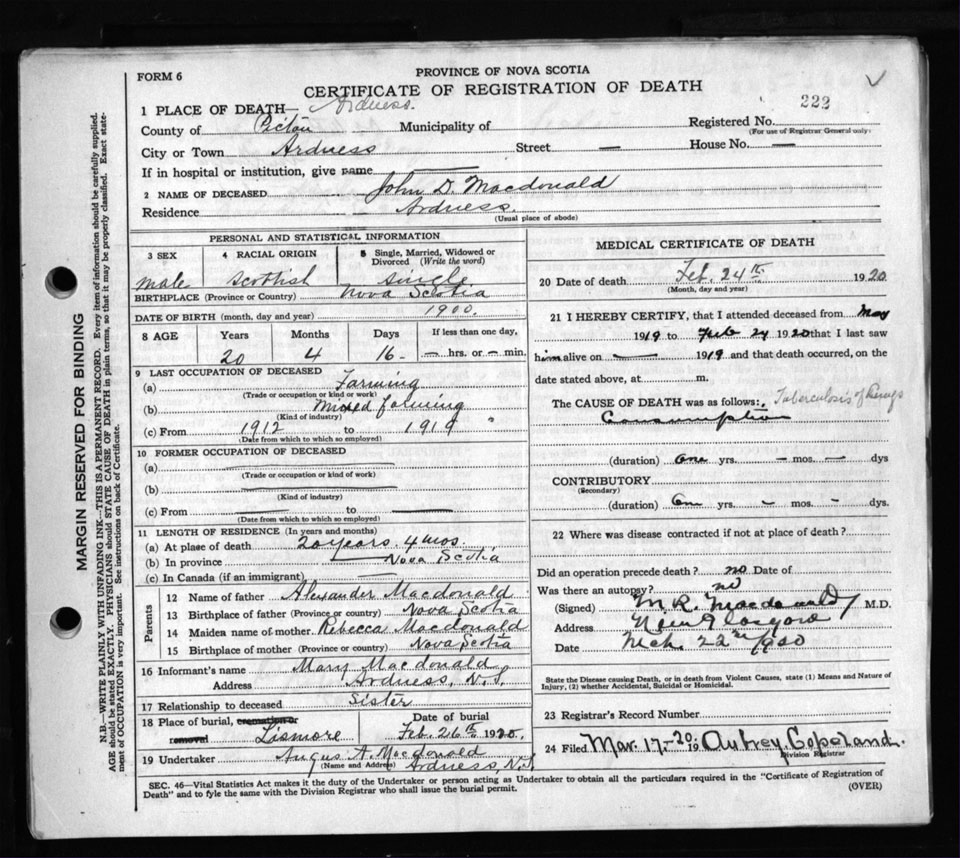 FORM 6
PROVINCE OF NOVA SCOTIA
CERTIFICATE OF REGISTRATION OF DEATH
222
1 PLACE OF DEATH— Ardness.
County of Pictou Municipality of Registered No.
(For use of Registrar General only)
City or Town Ardness Street — House No. —
If in hospital or institution, give name
2 NAME OF DECEASED John D. Macdonald
Residence Ardness.
(Usual place of abode)
PERSONAL AND STATISTICAL INFORMATION
3 SEX 4 RACIAL ORIGIN 5 Single, Married, Widowed or Divorced (Write the word)
male Scottish single
BIRTHPLACE (Province or Country) Nova Scotia
DATE OF BIRTH (month, day and year) 1900.
8 AGE Years Months Days If less than one day,
20 4 16 — hrs. or — min.
9 LAST OCCUPATION OF DECEASED
(a) Farming
(Trade or occupation or kind of work)
(b) Mixed farming
(Kind of industry)
(c) From 1912 to 1919 "
(Date from which to which so employed)
10 FORMER OCCUPATION OF DECEASED
(a)
(Trade or occupation or kind of work)
(b)
(Kind of industry)
(c) From to
(Date from which to which so employed)
11 LENGTH OF RESIDENCE (In years and months)
(a) At place of death 20 years 4 mos.
(b) In province Nova Scotia
(c) In Canada (if an immigrant) —
Parents
12 Name of father Alexander Macdonald
13 Birthplace of father (Province or country) Nova Scotia
14 Maiden name of mother Rebecca Macdonald
15 Birthplace of mother (Province or country) Nova Scotia
16 Informant's name Mary Macdonald
Address Ardness, N.S.
17 Relationship to deceased Sister
18 Place of burial, cremation or removal Lismore
Date of burial Feb. 26th 1920.
19 Undertaker Angus A. Macdonald
(Name and Address) Ardness, N.S.
MEDICAL CERTIFICATE OF DEATH
20 Date of death Feb. 24th 1920
(Month, day and year)
21 I HEREBY CERTIFY, that I attended deceased from May
1919 to Feb 24 1920 that I last saw
him alive on — 1919 and that death occurred, on the
date stated above, at m.
The CAUSE OF DEATH was as follows: Tuberculosis of Lungs
Consumption
(duration) One yrs. – mos. — dys
CONTRIBUTORY
(Secondary)
(duration) On yrs. – mos. – dys.
22 Where was disease contracted if not at place of death?
Did an operation precede death? no Date of
Was there an autopsy? no
(Signed) M. R. Macdonald M.D.
Address New Glasgow
Date Mch. 22nd 1920
State the Disease causing Death, or in death from Violent Causes, state (1) Means and Nature of
Injury, (2) whether Accidental, Suicidal or Homicidal.
23 Registrar's Record Number
24 Filed Mar. 17-20. 19 Autrey Copeland.
Division Registrar
SEC. 46—Vital Statistics Act makes it the duty of the Undertaker or person acting as Undertaker to obtain all the particulars required in the "Certificate of Registration of
Death" and to fyle the same with the Division Registrar who shall issue the burial permit.
(OVER)
MARGIN RESERVED FOR BINDING
N.B.—WRITE PLAINLY WITH UNFADING INK—THIS IS A PERMANENT RECORD. Every item of information should be carefully supplied.
AGE should be stated EXACTLY. PHYSICIANS should STATE CAUSE OF DEATH in plain terms, so that it may be properly classified. Exact state-
ment of OCCUPATION is very important. See instructions on back of Certificate.